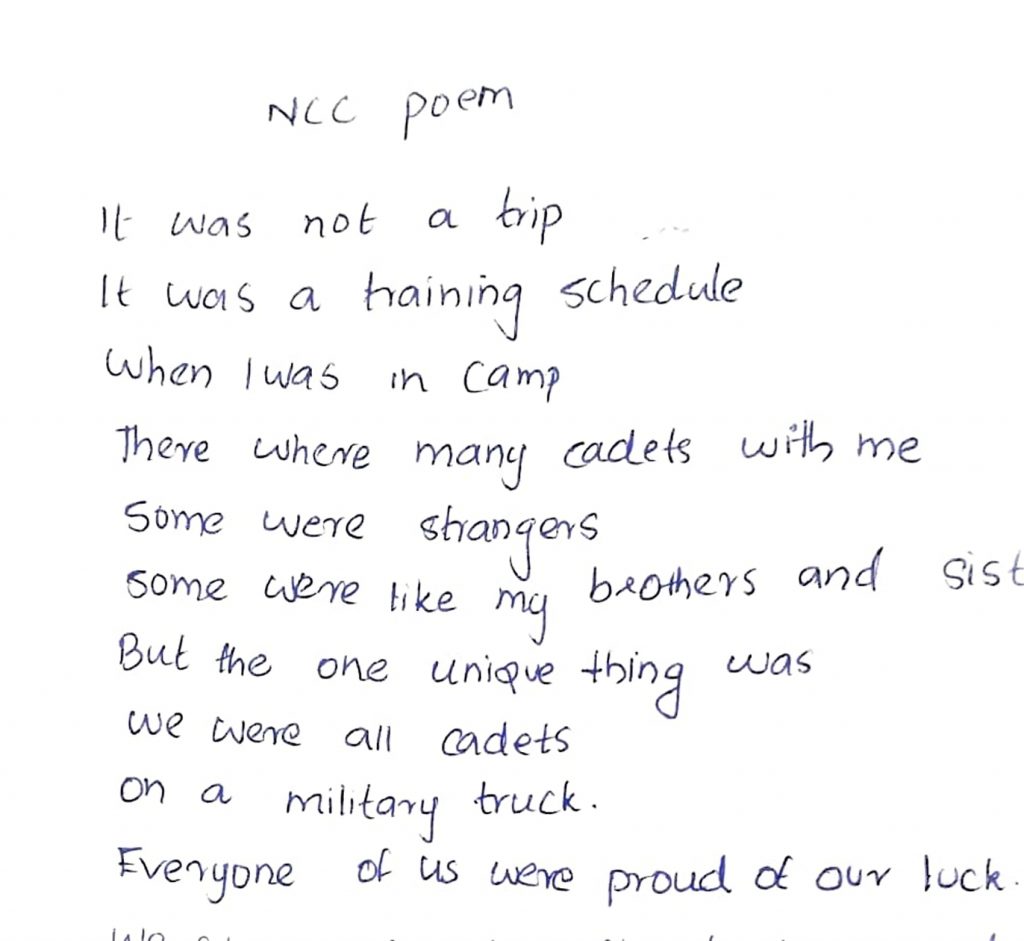 NCC poem
It was not a trip
It was a training schedule
When I was in camp
There where many cadets with me
Some were strangers
some were like my brothers and sist
But the one unique thing was
we were all cadets
on a military truck.
Everyone of us were proud of our luck.